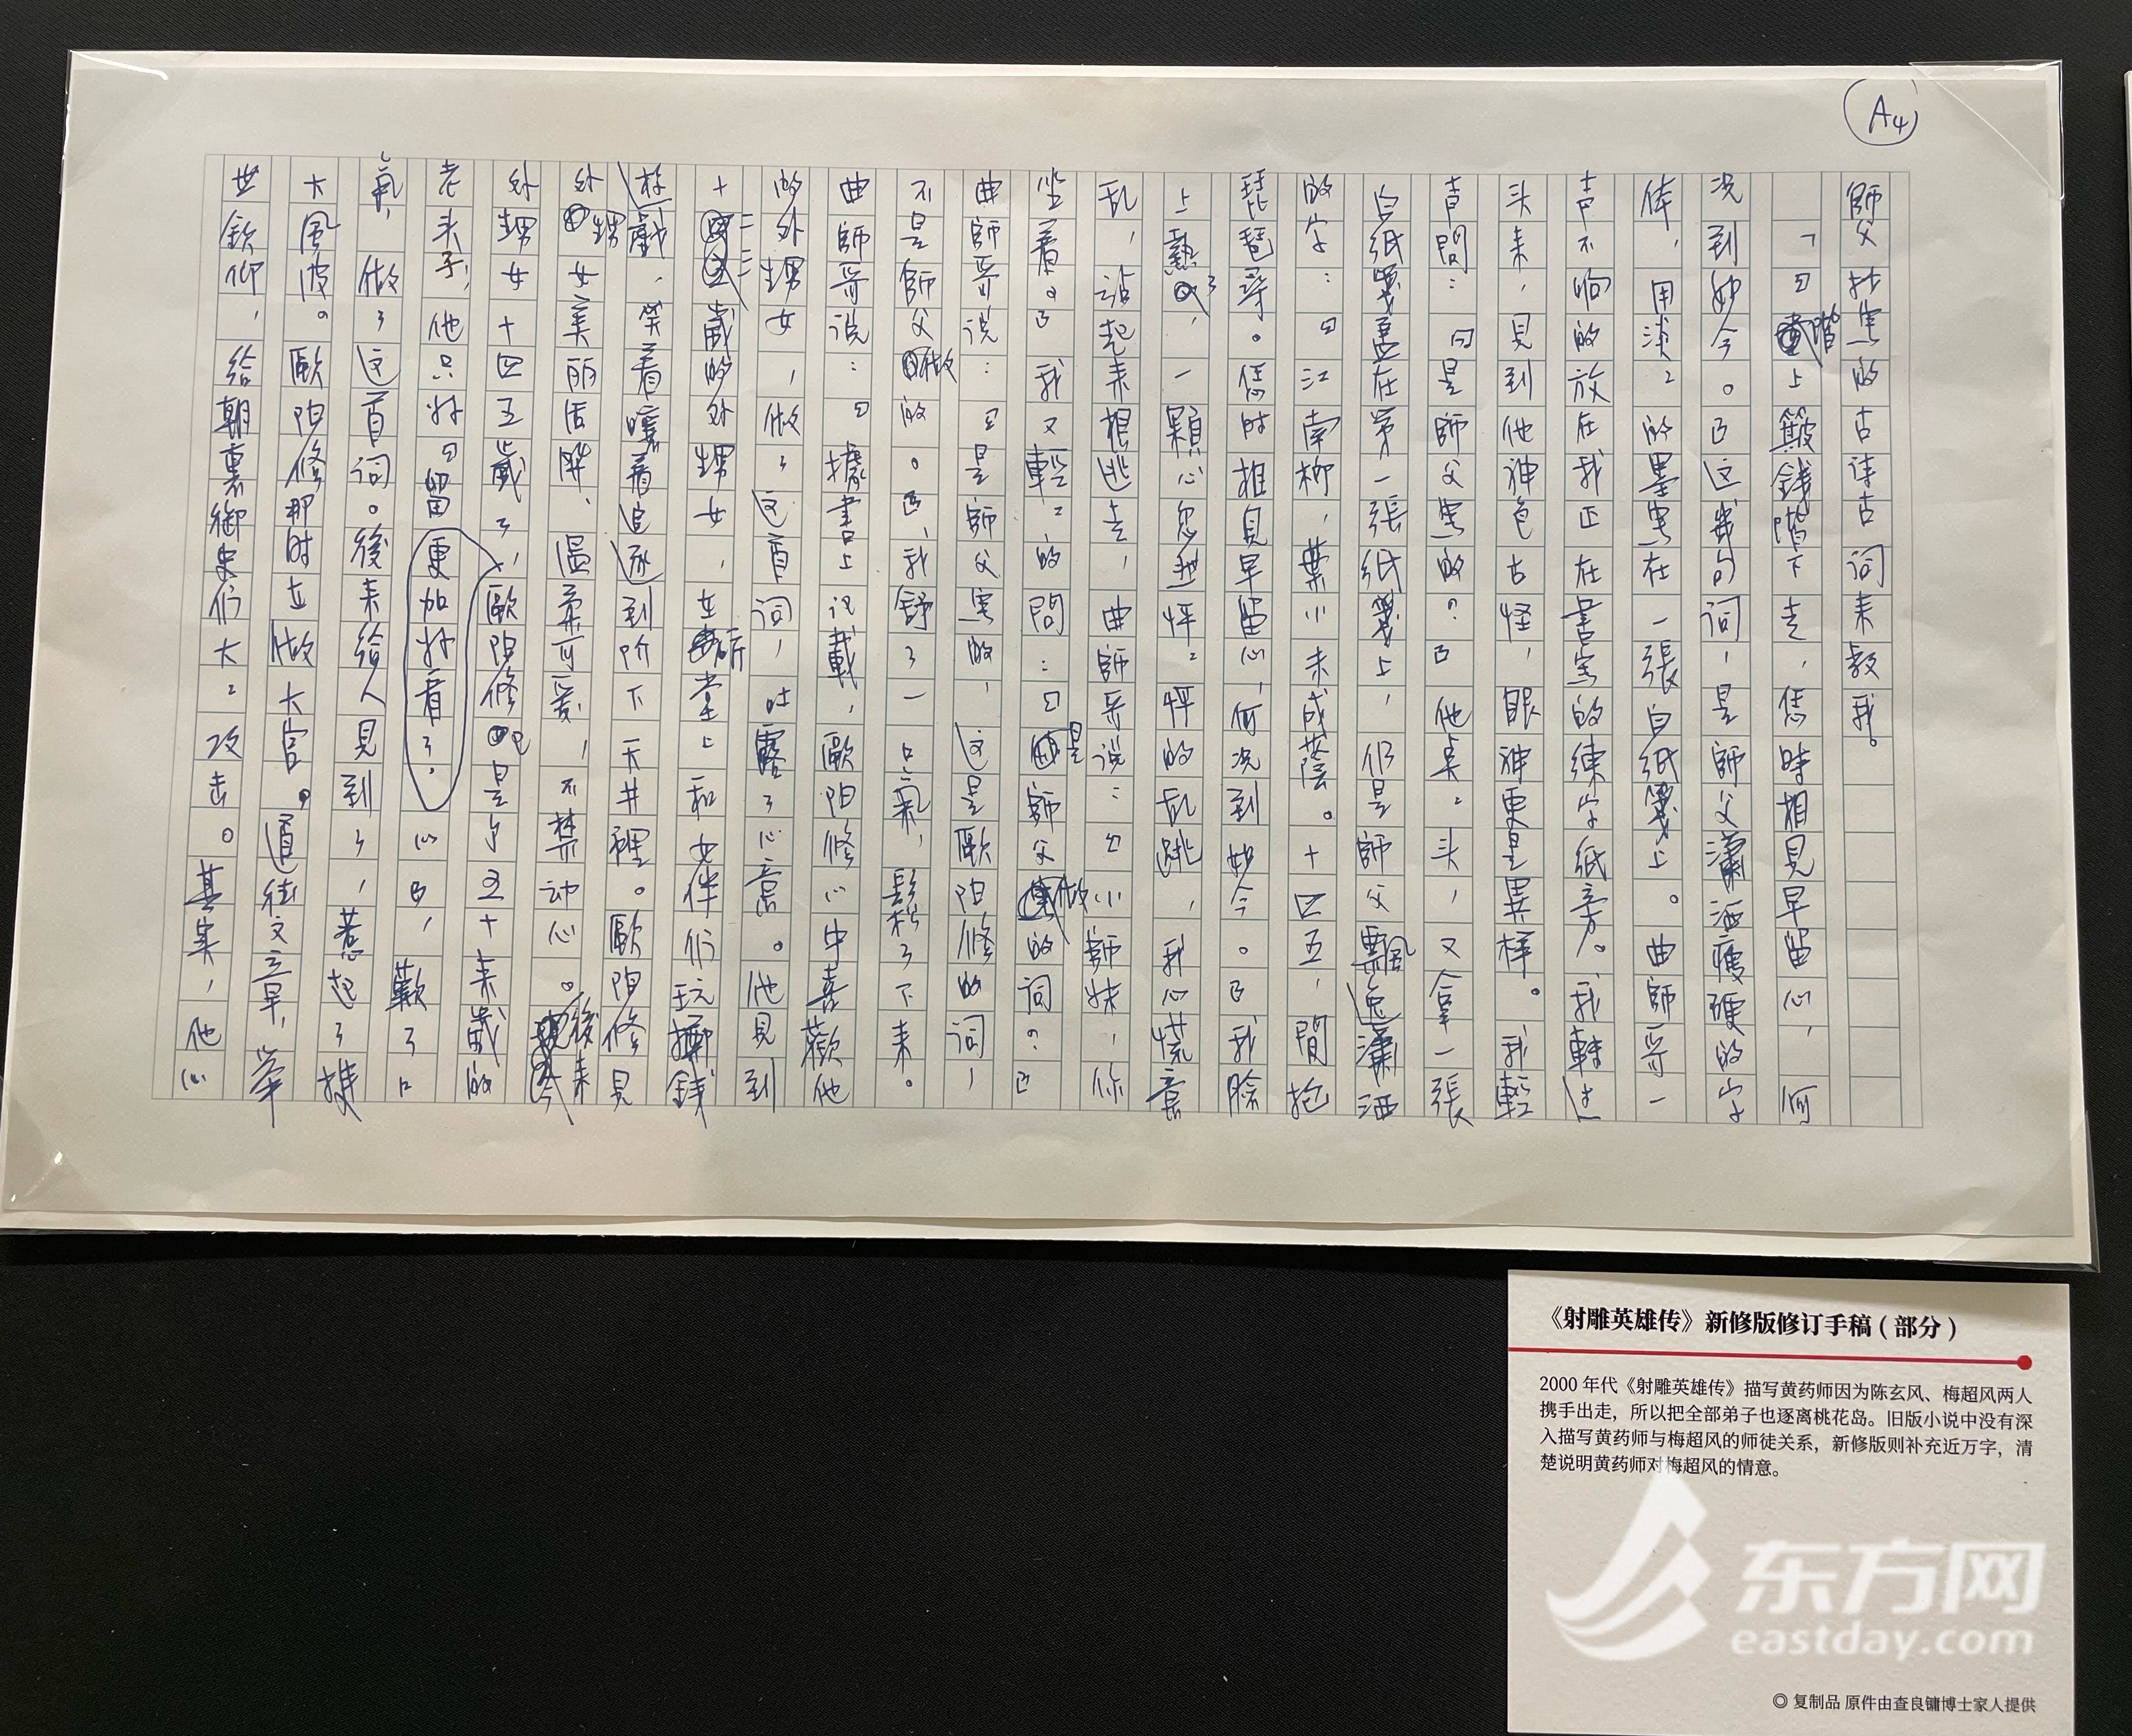 A4
師父抄寫的古诗古词来教我。
「『階上簸錢階下走，恁時相見早留心，何
况到如今。』这几句词，是師父瀟洒瘦硬的字
体，用淡々的墨寫在一張白纸箋上。曲師哥一
声不响的放在我正在書寫的練字纸旁。我轉过
头来，見到他神色古怪，眼神更是異样。我輕
声問：『是師父寫的？』他点々头，又拿一張
白纸箋盖在第一張纸箋上，仍是師父飄逸瀟洒
的字：『江南柳，葉小未成蔭。十四五，閒抱
琵琶尋。恁时相見早留心，何况到如今。』我臉
上熱了，一顆心忽然怦々的乱跳，我心慌意
乱，站起来想逃走，曲師哥说：『小師妹，你
坐着。』我又輕々的問：『是師父做的词？』
曲師哥说：『是師父寫的，这是歐阳修的词，
不是師父做的。』我舒了一口氣，鬆了下来。
曲師哥说：『據書上记載，歐阳修心中喜歡他
的外甥女，做了这首词，吐露了心意。他見到
十二三歲的外甥女，在廳堂上和女伴们玩擲錢
游戲，笑着嚷着追逐到阶下天井裡。歐阳修見
外甥女美丽活潑、温柔可爱，不禁动心。後来
外甥女十四五歲了，歐阳修已是个五十来歲的
老头子，他只好『留更加好看了，心』，歎了口
氣，做了这首词。後来给人見到了，惹起了挺
大風波。歐阳修那时在做大官。道德文章，举
世欽仰，给朝裏御史们大々攻击。其实，他心
《射雕英雄传》新修版修订手稿（部分）
2000 年代《射雕英雄传》描写黄药师因为陈玄风、梅超风两人
携手出走，所以把全部弟子也逐离桃花岛。旧版小说中没有深
入描写黄药师与梅超风的师徒关系，新修版则补充近万字，清
楚说明黄药师对梅超风的情意。
东方网
eastday.com
◎ 复制品 原件由查良镛博士家人提供